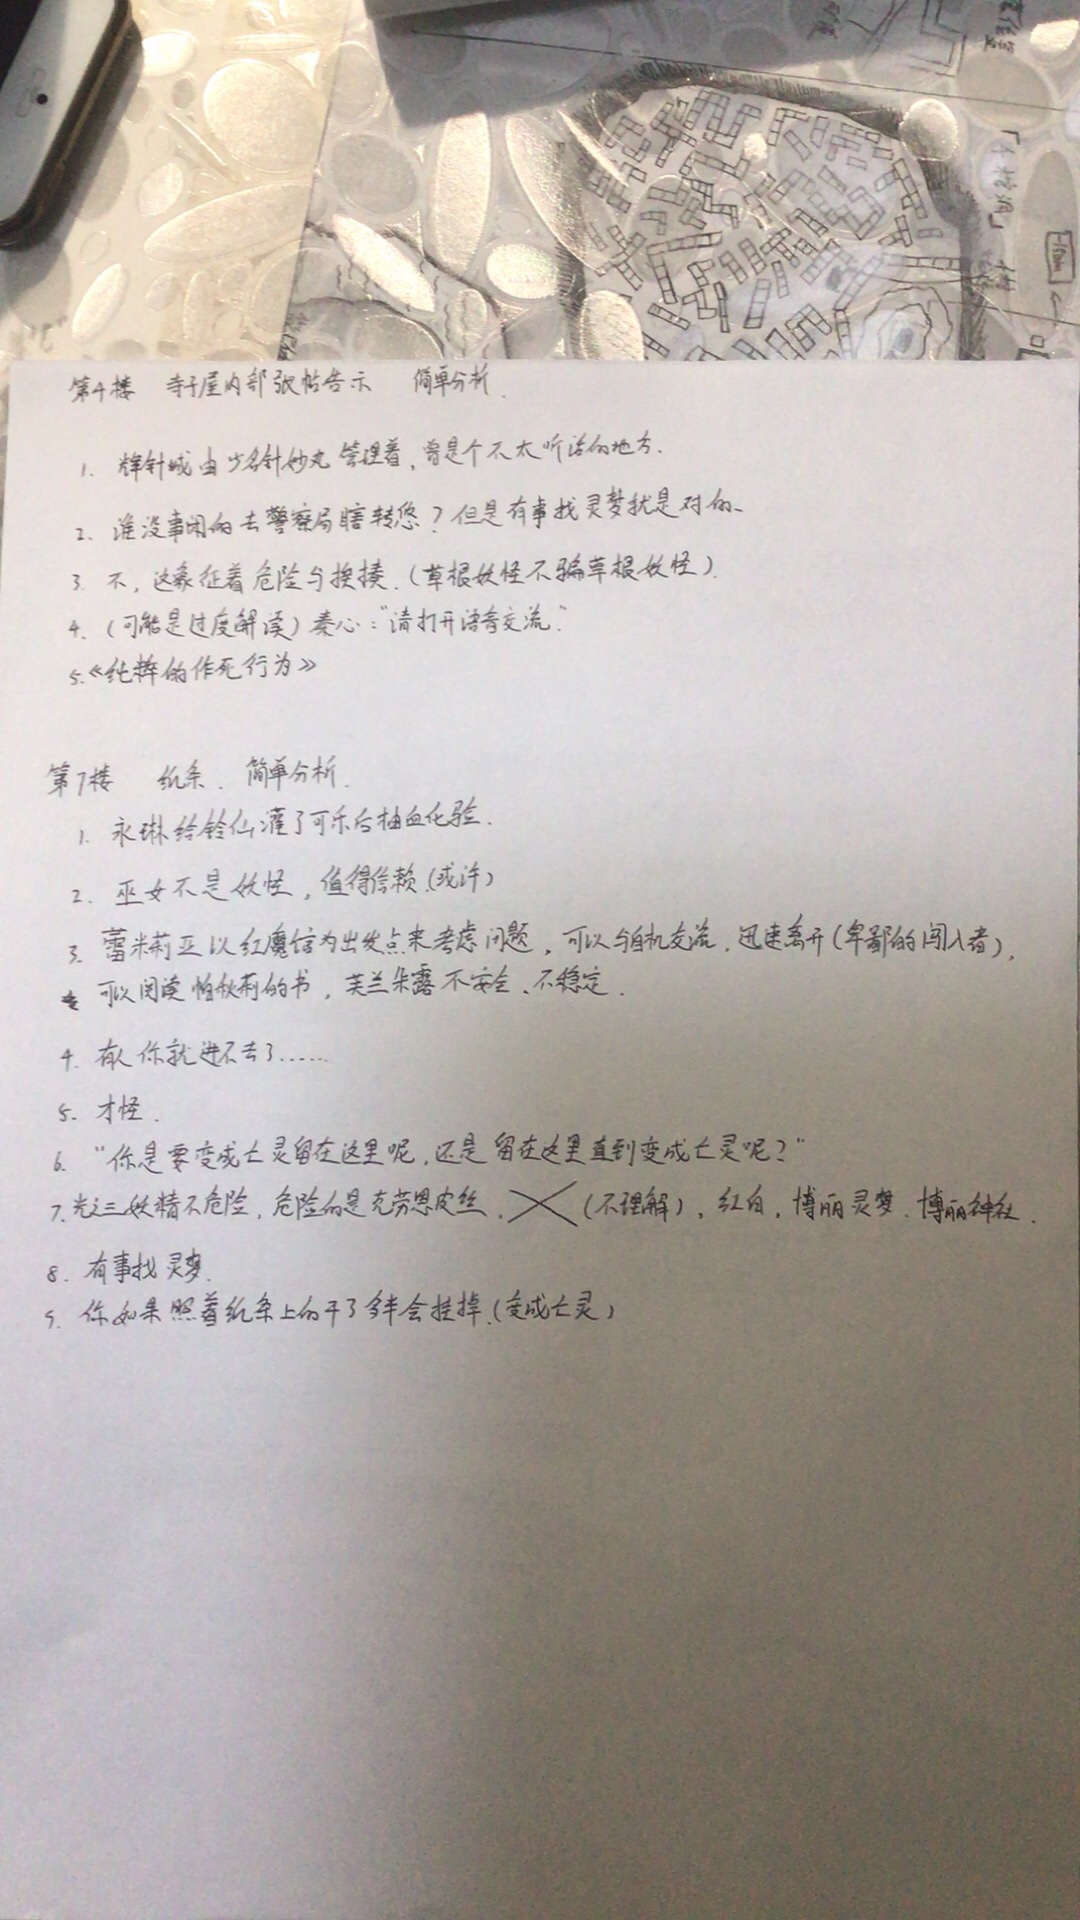 第4楼 寺子屋内部张帖告示 简单分析.
1. 辉针城由少名针妙丸管理着,曾是个不太听话的地方.
2. 谁没事闲的去警察局瞎转悠?但是有事找灵梦就是对的.
3. 不,这象征着危险与挨揍.(草根妖怪不骗草根妖怪).
4. (可能是过度解读)秦心:"请打开语音交流."
5.《纯粹的作死行为》
第7楼 纸条. 简单分析.
1. 永琳给铃仙灌了可乐后抽血化验.
2. 巫女不是妖怪,值得信赖.(或许)
3. 蕾米莉亚以红魔馆为出发点来考虑问题,可以与自机交流.迅速离开(卑鄙的闯入者),
可以阅读帕秋莉的书,芙兰朵露不安全、不稳定.
4. 有人你就进不去了......
5. 才怪.
6. "你是要变成亡灵留在这里呢,还是留在这里直到变成亡灵呢?"
7. 光之三妖精不危险,危险的是克劳恩皮丝. (不理解),红白,博丽灵梦.博丽神社.
8. 有事找灵梦.
9. 你如果照着纸条上的干了多半会挂掉.(变成亡灵)